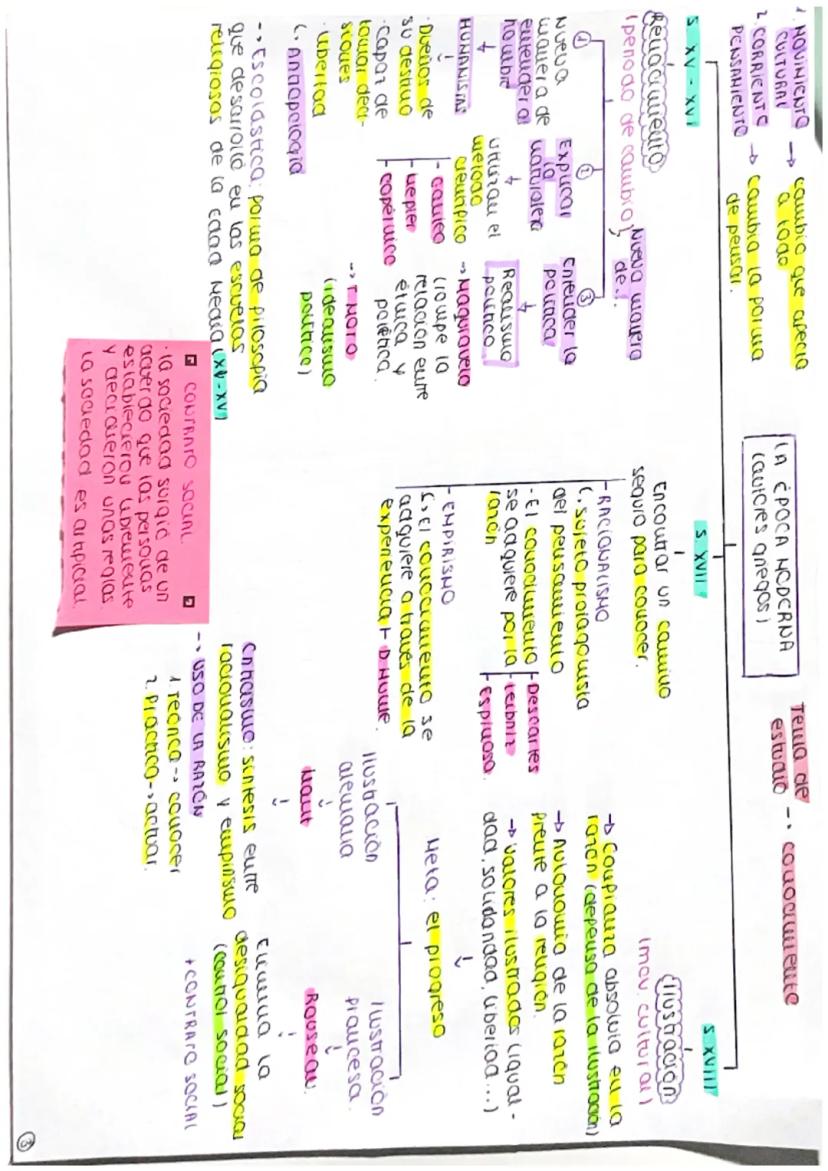 1. MOVIMIENTO CULTURAL → cambio que afecta a todo
2. CORRIENTE PENSAMIENTO → cambia la forma de pensar.
LA ÉPOCA MODERNA
(autores griegos)
Tema de estudio → conocimiento
S. XV - XVI
Renacimiento
(periodo de cambio)
Nueva manera de...
①
Nueva manera de entender al hombre
HUMANISTAS
· Dueños de su destino
· Capaz de tomar decisiones
· libertad
↳ Antropología
②
Explicar la naturaleza
utilizan el método científico
- Galileo
- Kepler
- Copérnico
③
Entender la política
Realismo político
→ Maquiavelo
(rompe la relación entre ética y política.
→ T. Moro
(idealismo político)
→ Escolástica: forma de filosofía
que desarrolló en las escuelas
religiosas de la Edad Media (XV-XVI
▪ CONTRATO SOCIAL ▪
· la sociedad surgió de un
acuerdo que las personas
establecieron libremente
y decidieron unas reglas.
la sociedad es artificial.
S. XVII
Encontrar un camino
seguro para conocer.
- RACIONALISMO
↳ sujeto protagonista
del pensamiento
- El conocimiento
se adquiere por la
razón
- Descartes
- Leibniz
- Espinosa.
- EMPIRISMO
↳ El conocimiento se
adquiere a través de la
experiencia + D. Hume.
S. XVIII
Ilustración
(mov. cultural)
→ Confianza absoluta en la
razón (defensa de la ilustración)
→ Autonomía de la razón
frente a la religión.
→ valores ilustrados (igual-
dad, solidaridad, libertad...)
Meta: el progreso
Ilustración
alemana
Kant
Criticismo: síntesis entre
racionalismo y empirismo
→ USO DE LA RAZÓN
1. Teórica → conocer
2. Práctica → actuar.
Ilustración
francesa.
Rousseau.
Elimina la
desigualdad social
(control social)
+ CONTRATO SOCIAL
③